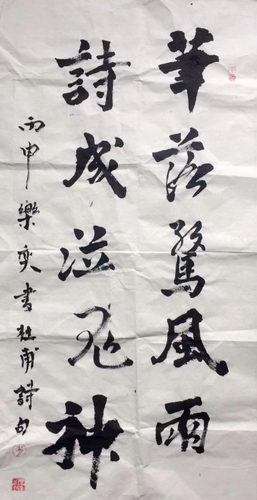 筆落驚風雨
詩成泣鬼神
丙申樂奕書杜甫詩句